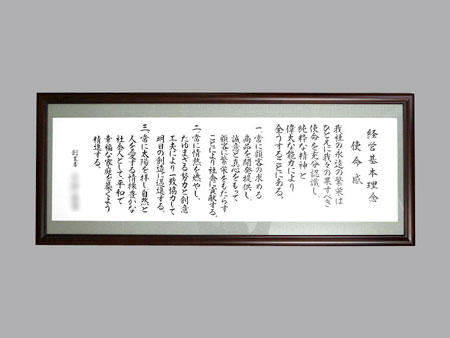 経営基本理念
使命感
我社の永遠の繁栄は
ひとえに我々の果すべき
使命を充分認識し、
純粋な精神と
偉大な能力により
全うすることにある。
一、常に顧客の求める
商品を開発提供し、
誠意と真心をもって
顧客に繁栄をもたらす
ことにより社会に貢献する。
二、常に情熱を燃やし、
たゆまざる努力と創意
工夫により一致協力して
明日の創造に邁進する。
三、常に太陽を拝し自然と
人を愛する情操豊かな
社会人として、平和で
幸福な家庭を築くよう
精進する。
創業者